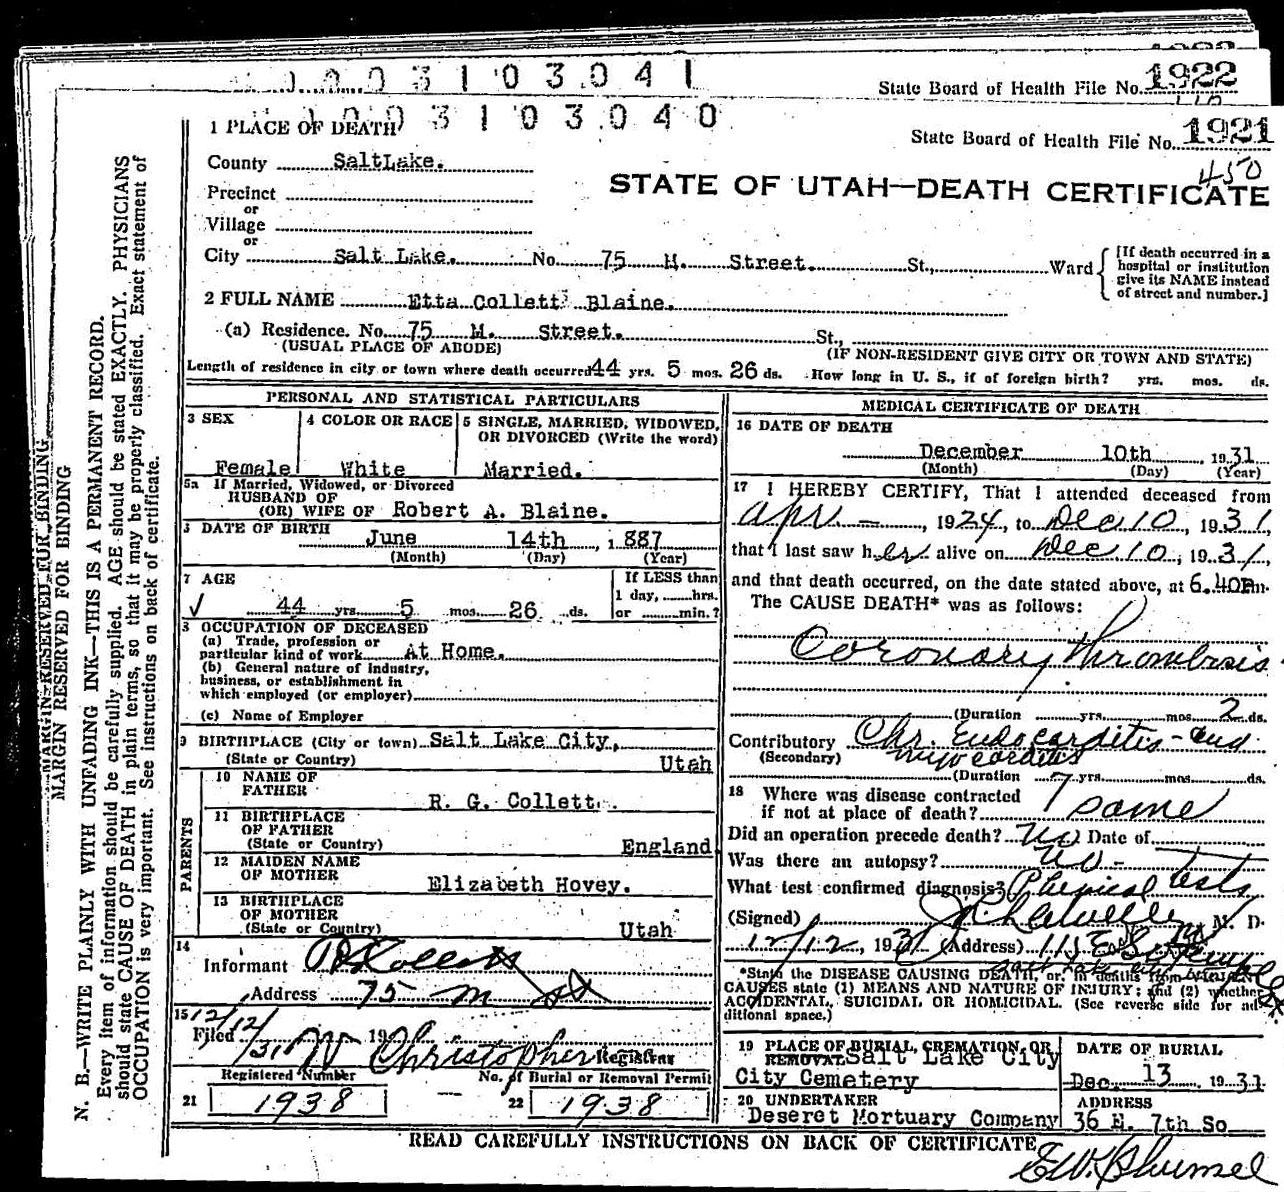 0003103041
State Board of Health File No. 1922
0003103040
State Board of Health File No. 1921
450
1 PLACE OF DEATH
County SaltLake.
STATE OF UTAH—DEATH CERTIFICATE
Precinct
or
Village
or
City Salt Lake. No. 75 M. Street. St., Ward
[If death occurred in a hospital or institution give its NAME instead of street and number.]
2 FULL NAME Etta Collett Blaine.
(a) Residence. No. 75 M. Street. St.,
(USUAL PLACE OF ABODE) (IF NON-RESIDENT GIVE CITY OR TOWN AND STATE)
Length of residence in city or town where death occurred 44 yrs. 5 mos. 26 ds. How long in U. S., if of foreign birth? yrs. mos. ds.
PERSONAL AND STATISTICAL PARTICULARS
3 SEX
Female
4 COLOR OR RACE
White
5 SINGLE, MARRIED, WIDOWED, OR DIVORCED (Write the word)
Married.
5a If Married, Widowed, or Divorced
HUSBAND OF
(OR) WIFE OF Robert A. Blaine.
DATE OF BIRTH June 14th, 1887
(Month) (Day) (Year)
7 AGE
44 yrs. 5 mos. 26 ds.
If LESS than
1 day, hrs.
or min.?
OCCUPATION OF DECEASED
(a) Trade, profession or
particular kind of work At Home.
(b) General nature of industry,
business, or establishment in
which employed (or employer)
(c) Name of Employer
9 BIRTHPLACE (City or town) Salt Lake City,
(State or Country) Utah
PARENTS
10 NAME OF
FATHER R. G. Collett.
11 BIRTHPLACE
OF FATHER
(State or Country) England
12 MAIDEN NAME
OF MOTHER Elizabeth Hovey.
13 BIRTHPLACE
OF MOTHER
(State or Country) Utah
14
Informant
Address 75 M St
15
Filed 12/12/31 19 Christopher Registrar
Registered Number No. of Burial or Removal Permit
21 1938 22 1938
MEDICAL CERTIFICATE OF DEATH
16 DATE OF DEATH
December 10th, 1931
(Month) (Day) (Year)
17 I HEREBY CERTIFY, That I attended deceased from
Apr —, 1924, to Dec 10, 1931
that I last saw her alive on Dec 10, 1931,
and that death occurred, on the date stated above, at 6.40Pm.
The CAUSE DEATH* was as follows:
Coronary Thrombosis
(Duration yrs. mos. 2 ds.
Contributory Chr. Endocarditis and
(Secondary) myocarditis
(Duration 7 yrs. mos. ds.
18 Where was disease contracted
if not at place of death? same
Did an operation precede death? no Date of
Was there an autopsy? no -
What test confirmed diagnosis? Chemical tests
(Signed) M. D.
12/12, 1931 (Address)
*State the DISEASE CAUSING DEATH, or, in deaths from
CAUSES state (1) MEANS AND NATURE OF INJURY; and (2) whether
ACCIDENTAL, SUICIDAL OR HOMICIDAL. (See reverse side for ad-
ditional space.)
19 PLACE OF BURIAL, CREMATION, OR
REMOVAL Salt Lake City
City Cemetery
DATE OF BURIAL
Dec. 13, 1931
20 UNDERTAKER
Deseret Mortuary Company
ADDRESS
36 E. 7th So
READ CAREFULLY INSTRUCTIONS ON BACK OF CERTIFICATE
MARGIN RESERVED FOR BINDING
MARGIN RESERVED FOR BINDING
N. B.—WRITE PLAINLY WITH UNFADING INK—THIS IS A PERMANENT RECORD.
Every item of information should be carefully supplied. AGE should be stated EXACTLY. PHYSICIANS
should state CAUSE OF DEATH in plain terms, so that it may be properly classified. Exact statement of
OCCUPATION is very important. See instructions on back of certificate.